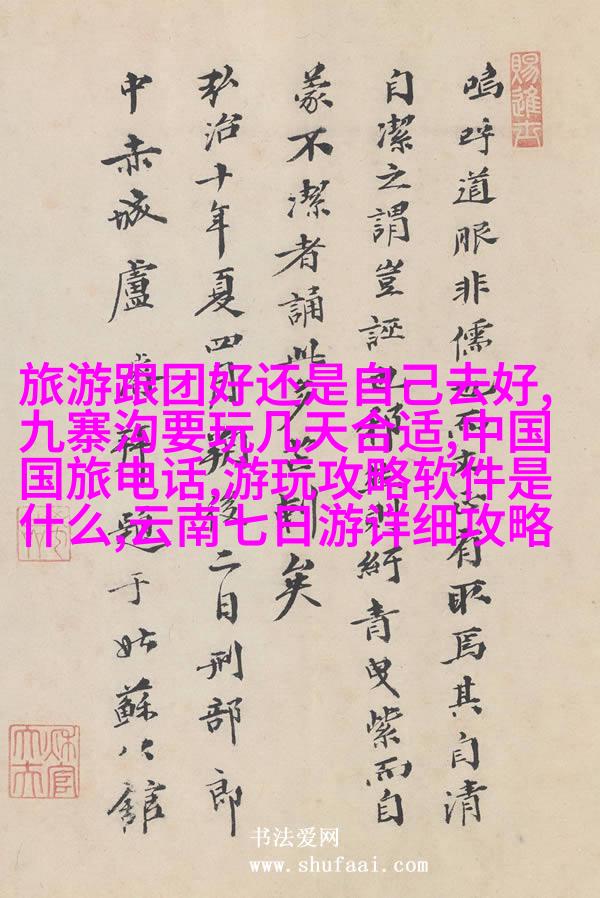 賜進士
嗚呼道眼非儒 有取焉其自清
自潔之謂豈誣 紆青曳紫而自
蒙不潔者誦此 矣
弘治十年夏四月 後二日刑部郎
中赤城盧 題于姑蘇公館
旅游跟团好还是自己去好,
九寨沟要玩几天合适,中国
国旅电话,游玩攻略软件是
什么,云南七日游详细攻略
书法爱网
www.shufaai.com